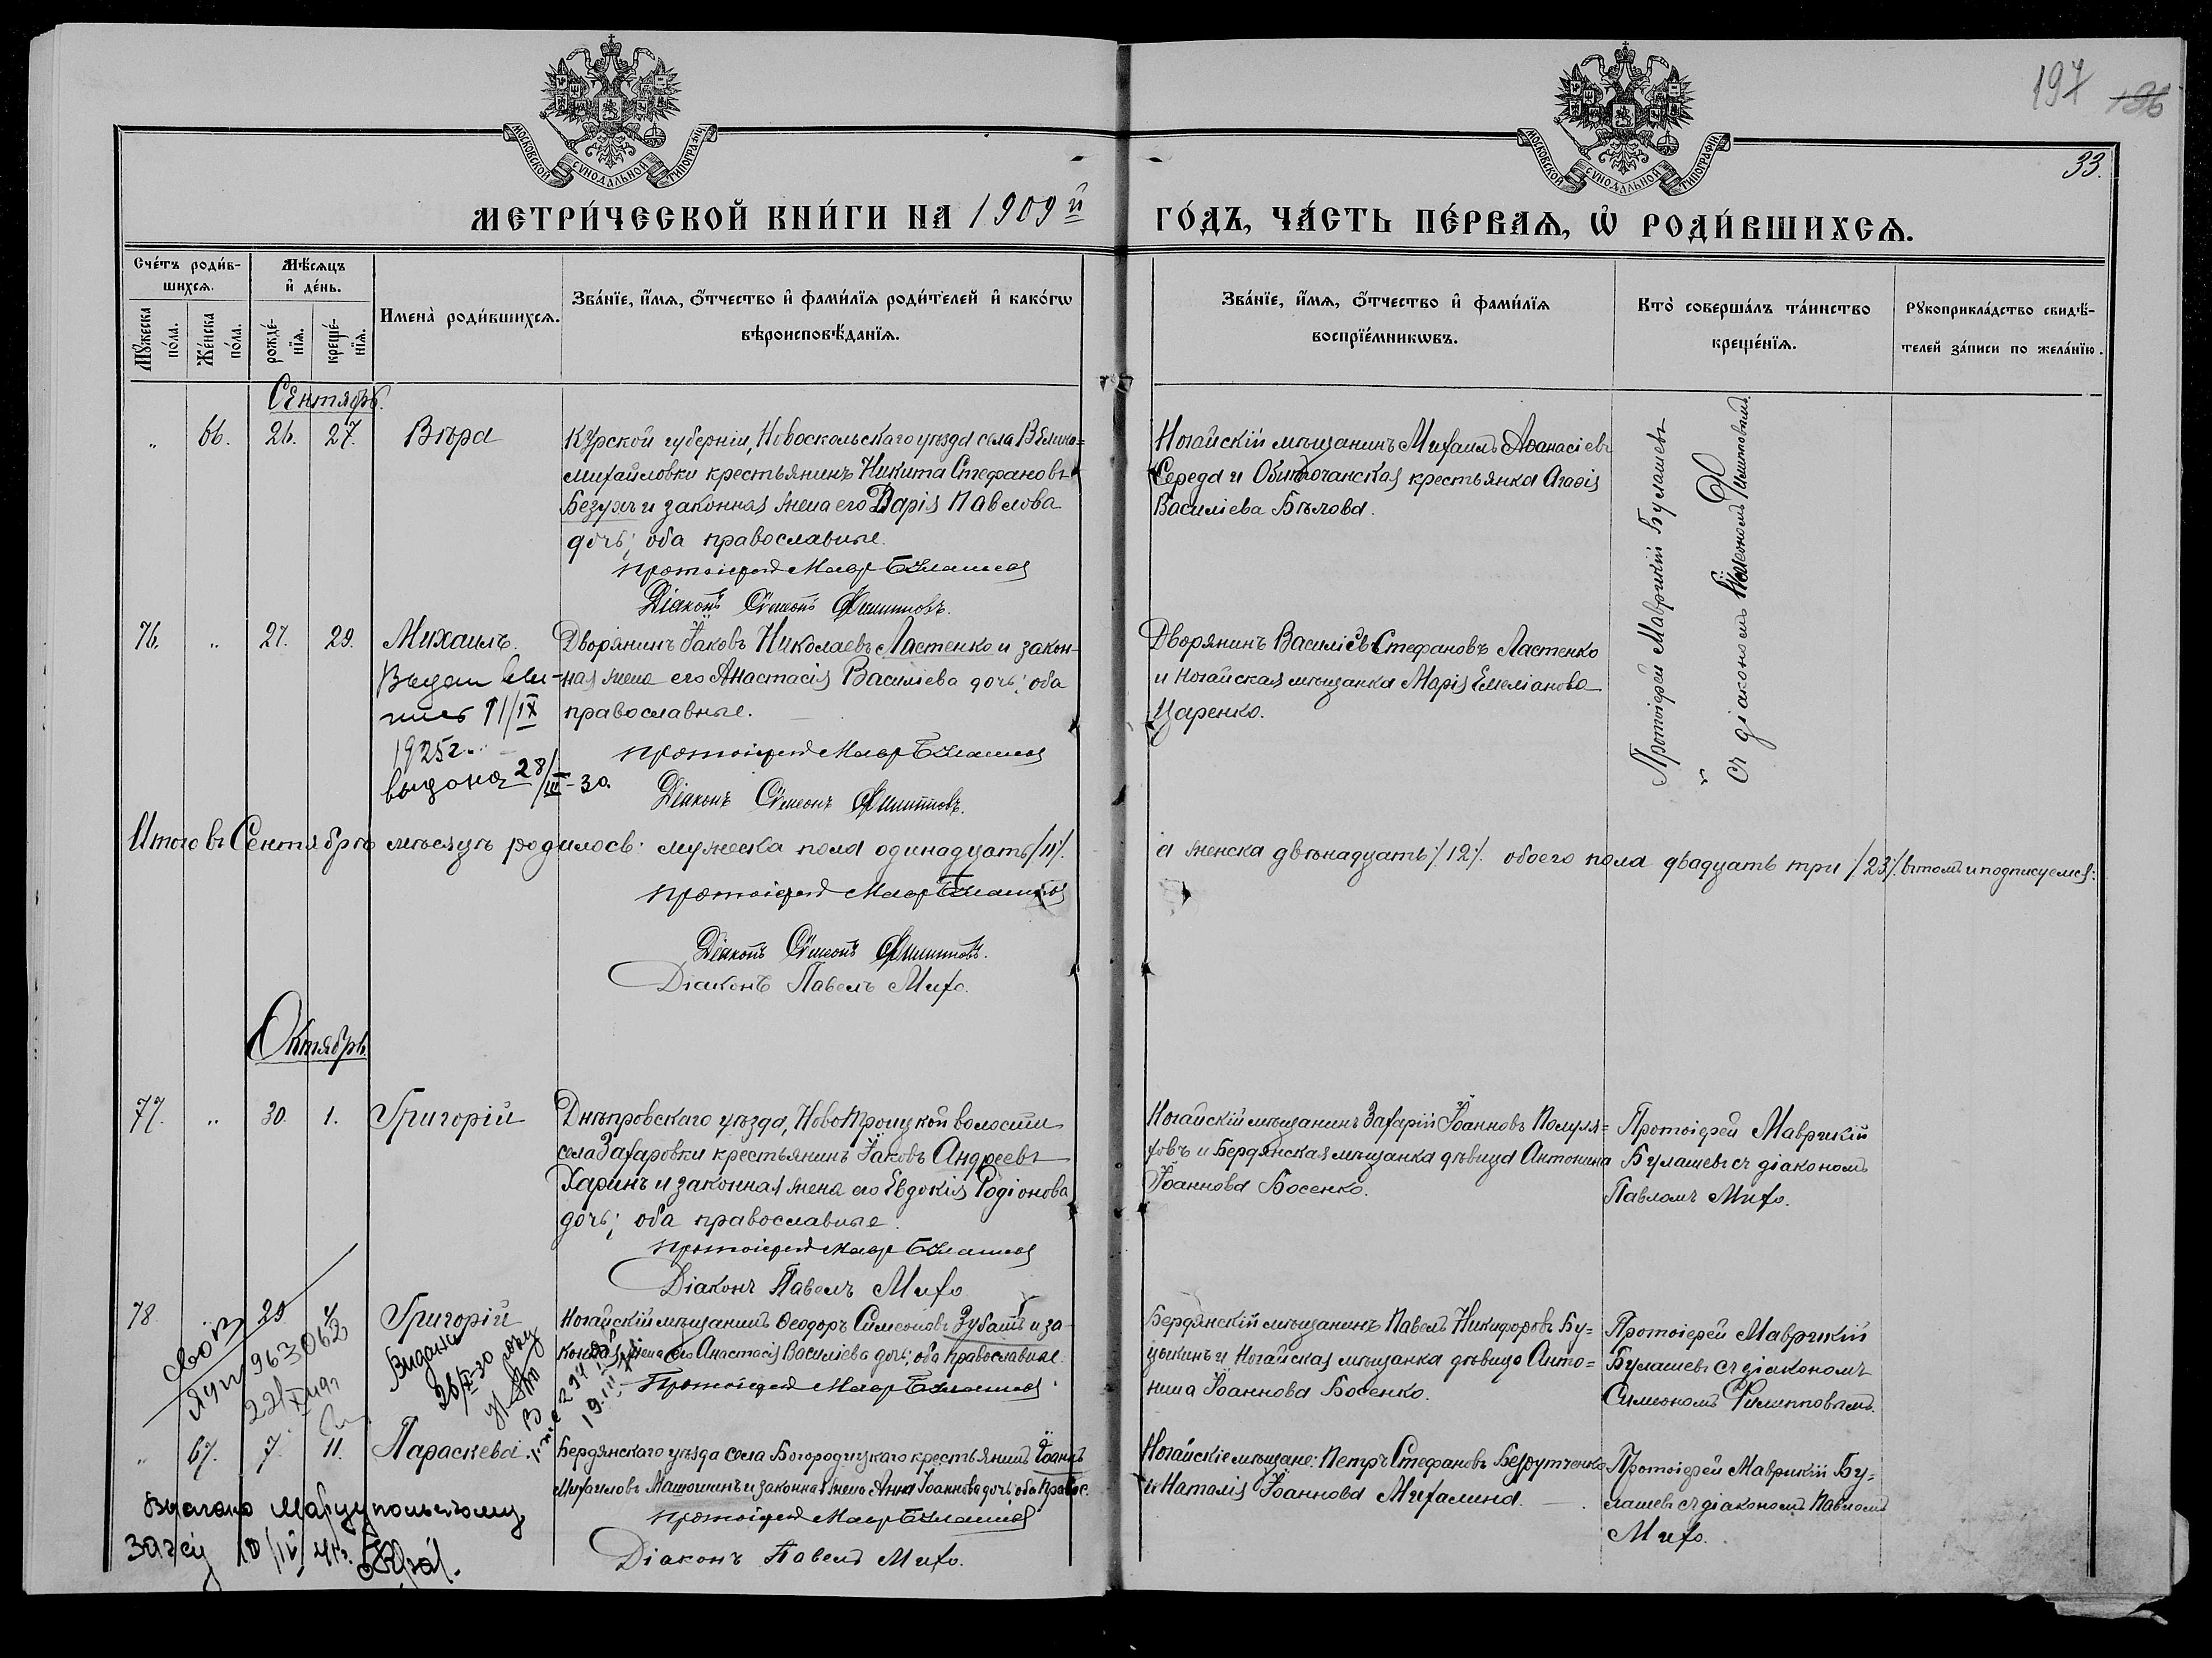 197 196
33.
МОСКОВСКОЙ СУНОДАЛЬНОЙ ТИПОГРАФІИ
МОСКОВСКОЙ СУНОДАЛЬНОЙ ТИПОГРАФІИ
МЕТРИ́ЧЕСКОЙ КНИ́ГИ НА 1909й ГО́ДЪ, ЧА́СТЬ ПЕ́РВАѦ, Ѡ҆ РОДИ́ВШИХСѦ.
Сче́тъ роди́в-
шихсѧ.
Мꙋ́жеска по́ла.
Же́нска по́ла.
Мѣ́сѧцъ
и҆ де́нь.
рожде́-
нїѧ.
креще́-
нїѧ.
Имена̀ роди́вшихсѧ.
Зва́нїе, и҆́мѧ, ѻ҆́тчество и҆ фами́лїѧ роди́телей и҆ како́гѡ
вѣроисповѣ́данїѧ.
Зва́нїе, и҆́мѧ, ѻ҆́тчество и҆ фами́лїѧ
воспрїе́мникѡвъ.
Кто̀ соверша́лъ та́инство
креще́нїѧ.
Рꙋкоприкла́дство свидѣ́-
телей за́писи по жела́нїю.
Сентябрь.
" 66. 26. 27. Вѣра
Курской губерніи, Новоскольскаго уѣзда села Велико=
михайловки крестьянинъ Никита Стефановъ
Безухъ и законная жена его Дарія Павлова
дочь; оба православные.
Протоіерей Мавр Булашев
Діаконъ Сѵмеонъ Филипповъ.
Ногайскій мѣщанинъ Михаилъ Аѳанасіевъ
Середа и Обиточанская крестьянка Агаѳія
Василіева Бѣлова.
Протоіерей Маврикій Булашевъ
съ діакономъ Сѵмеономъ Филипповымъ
76. " 27. 29. Михаилъ.
Дворянинъ Іаковъ Николаевъ Ластенко и закон-
ная жена его Анастасія Василіева дочь; оба
православные.
11/IX
1925г.
выдана 28/III-30.
Протоіерей Мавр Булашев
Діаконъ Сѵмеонъ Филипповъ.
Дворянинъ Василій Стефановъ Ластенко
и Ногайская мѣщанка Марія Емеліанова
Царенко.
Итого въ Сентябрѣ мѣсяцѣ родилось: мужеска пола одинадцать /11/. а женска двѣнадцать /12/. обоего пола двадцать три /23/. въ томъ и подписуемся:
Протоіерей Мавр Булашев
Діаконъ Сѵмеонъ Филипповъ.
Діаконъ Павелъ Михо.
Октябрь
77. " 30. 1. Григорій
Днѣпровскаго уѣзда, НовоТроицкой волости
села Захаровки крестьянинъ Іаковъ Андреевъ
Харинъ и законная жена его Евдокія Родіонова
дочь; оба православные.
Протоіерей Мавр Булашев
Діаконъ Павелъ Михо
Ногайскій мѣщанинъ Захарій Іоанновъ Полуля=
ховъ и Бердянская мѣщанка дѣвица Антонина
Іоаннова Босенко.
Протоіерей Маврикій
Булашевъ съ діакономъ
Павломъ Михо.
78. 29 4 Григорій
Ногайскій мѣщанинъ Ѳеодоръ Симеоновъ Зубатъ и за-
конная жена его Анастасія Василіева дочь; оба православные.
Протоіерей Мавр Булашев
963062
26/X-30
Бердянскій мѣщанинъ Павелъ Никифоровъ Бу=
цыкинъ и Ногайская мѣщанка дѣвица Анто=
нина Іоаннова Босенко.
Протоіерей Маврикій
Булашевъ съ діакономъ
Симеономъ Филипповымъ.
" 67. 7. 11. Параскева.
Бердянскаго уѣзда села Богородицкаго крестьянинъ Іоаннъ
Михаиловъ Машошинъ и законная жена Анна Іоаннова дочь оба правос.
Протоіерей Мавр Булашев
Діаконъ Павелъ Михо.
Ногайскіе мѣщане: Петръ Стефановъ Безрутченко
и Наталія Іоаннова Михалина.
Протоіерей Маврикій Бу=
лашевъ съ діакономъ Павломъ
Михо.
Выслано Мариупольскому
загсу 10/IV 41г.